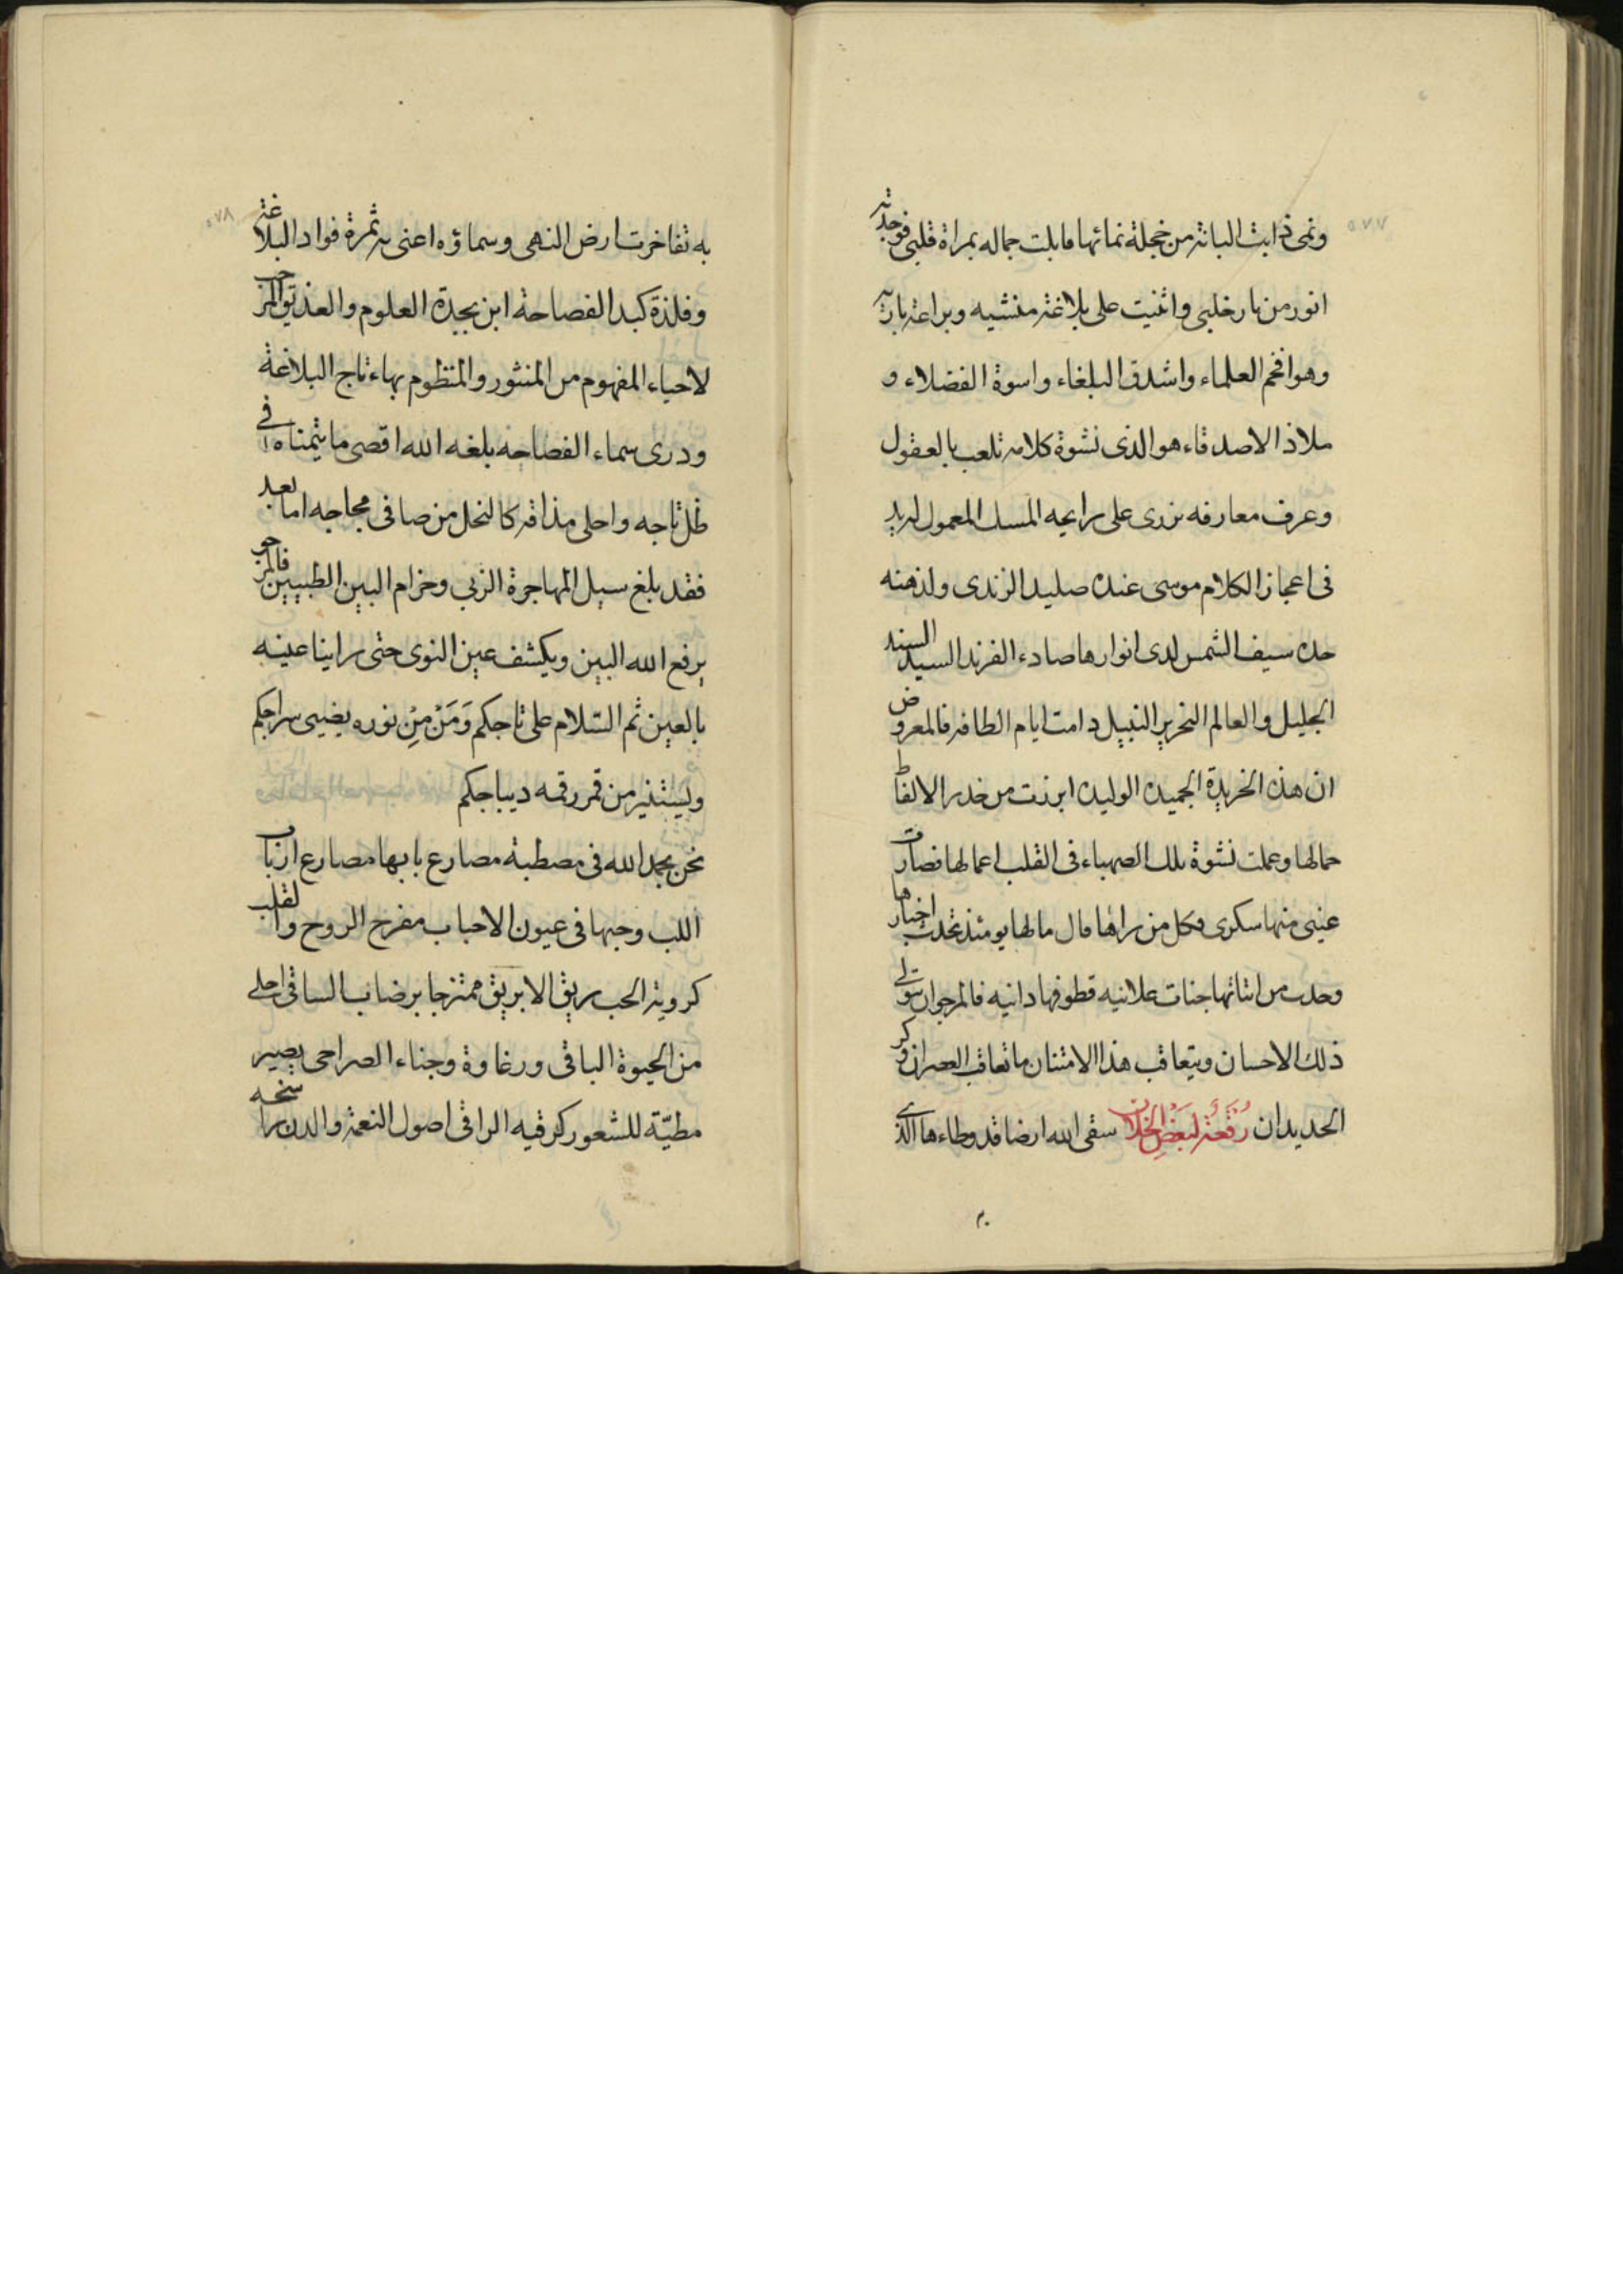 ٥٧٧
ونمى ذابت النباتة من خجلة نمائها قابلت جماله بمراة قلبى فوجدته
انور من نار خلبى واثنيت على بلاغة منشيه وبراعة باريه
وهو افخم العلماء واشدق البلغاء واسوة الفضلاء و
ملاذ الاصدقاء هو الذى نشوة كلامه تلعب بالعقول
وعرف معارفه تزرى على رايحه المسك المعمول له يد
فى اعجاز الكلام موسى عنده صليد الزندى ولذهنه
حده سيف الشمس لدى انوارها صادء الفرند السيد السند
الجليل والعالم النحرير النبيل دامت ايام الطافه فالمعروض
ان هذه الخريدة الجميده الوليده ابرزت من خدر الالفاظ
حمالها وعملت نشوة تلك الصهباء فى القلب اعمالها فصارت
عينى منها سكرى وكل من راها قال مالها يومئذ تحدث اخبارها
وحدت من اثنائها جنات علانيه قطوفها دانيه فالمرجوان تتولى
ذلك الاحسان ويتعاقب هذا الامتنان ما تعاقب العصران وكر
الجديدان رُقْعَة لبَعْضِ الخلان سقى الله ارضا قد وطاءها الذى
٥٧٨
به تفاخرت ارض النهى وسماؤه اعنى به ثمرة فواد البلاغة
وفلذة كبد الفصاحة ابن بجدة العلوم والعذيق المرجب
لاحياء المفهوم من المنثور والمنظوم بهاء تاج البلاغة
ودرى سماء الفصاحه بلغه الله اقصى ما يتمناه فى
ظل تاجه واحلى مذاقه كالنحل من صافى مجاجه اما بعد
فقد بلغ سيل المهاجرة الزبى وخزام البين الطبيين فالمرجو
يرفع الله البين ويكشف عين النوى حتى راينا عينه
بالعين ثم السّلام على تاجكم وَمَنْ مِنْ نوره يضيى سراجكم
ويستنير من قمر رقمه ديباجكم
نحن بحمد الله فى مصطبة مصارع بابها مصارع ارباب
اللب وجبها فى عيون الاحباب مفرح الروح والقلب
كرويته الحب بريق الابريق ممتزجا برضاب الساقى احلى
من الحيوة الباقى ورغاوة وجناء الصراحى بصير
مطيّة للشعور كرقيه الراقى اصول النعمة والدن